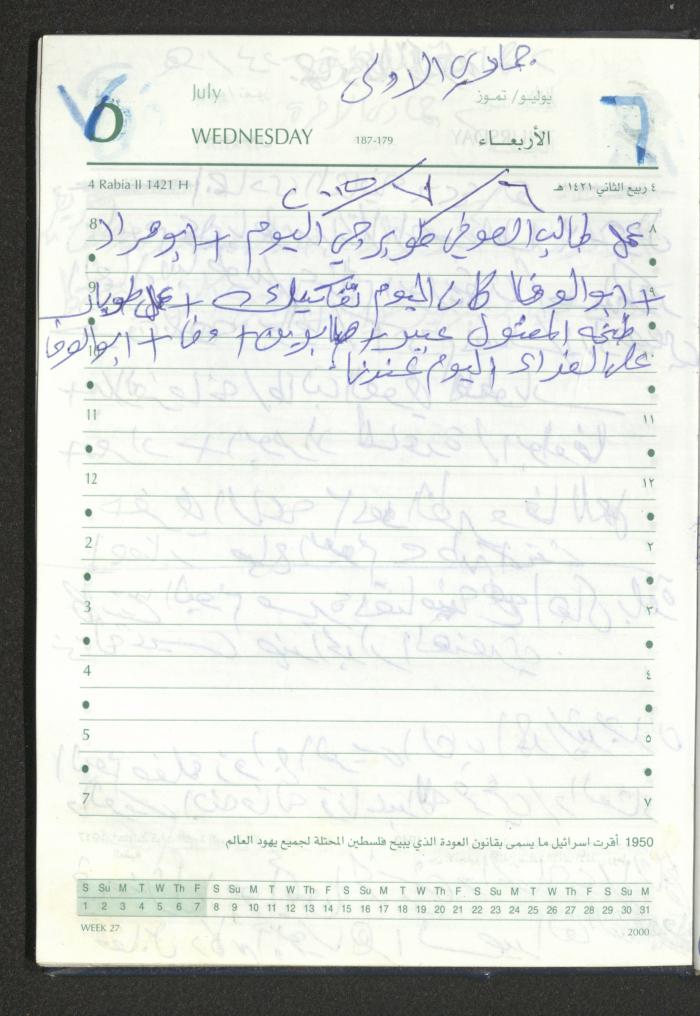 جمادي الاولى
July
يوليو/ تموز
6
٦
WEDNESDAY
187-179
الأربعـــاء
4 Rabia II 1421 H
٤ ربيع الثاني ١٤٢١ هـ
٦/٧/٢٠٠٥
8
٨
عمل طالب الصوفي طوبرجي اليوم + ابو مراد
9
٩
+ ابو الوفا كان اليوم تفكيك + عمل طوبار
طبخه عبير + صابرين + وفا + ابو الوفا
10
على الغداء اليوم عندنا
11
١١
12
١٢
2
٢
3
٣
4
٤
5
٥
7
٧
1950 أقرت اسرائيل ما يسمى بقانون العودة الذي يبيح فلسطين المحتلة لجميع يهود العالم
S Su M T W Th F S Su M T W Th F S Su M T W Th F S Su M T W Th F S Su M
1 2 3 4 5 6 7 8 9 10 11 12 13 14 15 16 17 18 19 20 21 22 23 24 25 26 27 28 29 30 31
WEEK 27
2000